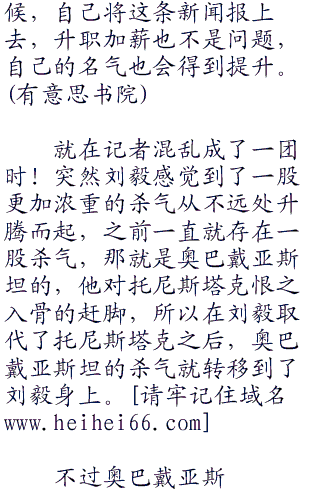 候，自己将这条新闻报上
去，升职加薪也不是问题，
自己的名气也会得到提升。
(有意思书院)
就在记者混乱成了一团
时！突然刘毅感觉到了一股
更加浓重的杀气从不远处升
腾而起，之前一直就存在一
股杀气，那就是奥巴戴亚斯
坦的，他对托尼斯塔克恨之
入骨的赶脚，所以在刘毅取
代了托尼斯塔克之后，奥巴
戴亚斯坦的杀气就转移到了
刘毅身上。[请牢记住域名
www.heihei66.com]
不过奥巴戴亚斯